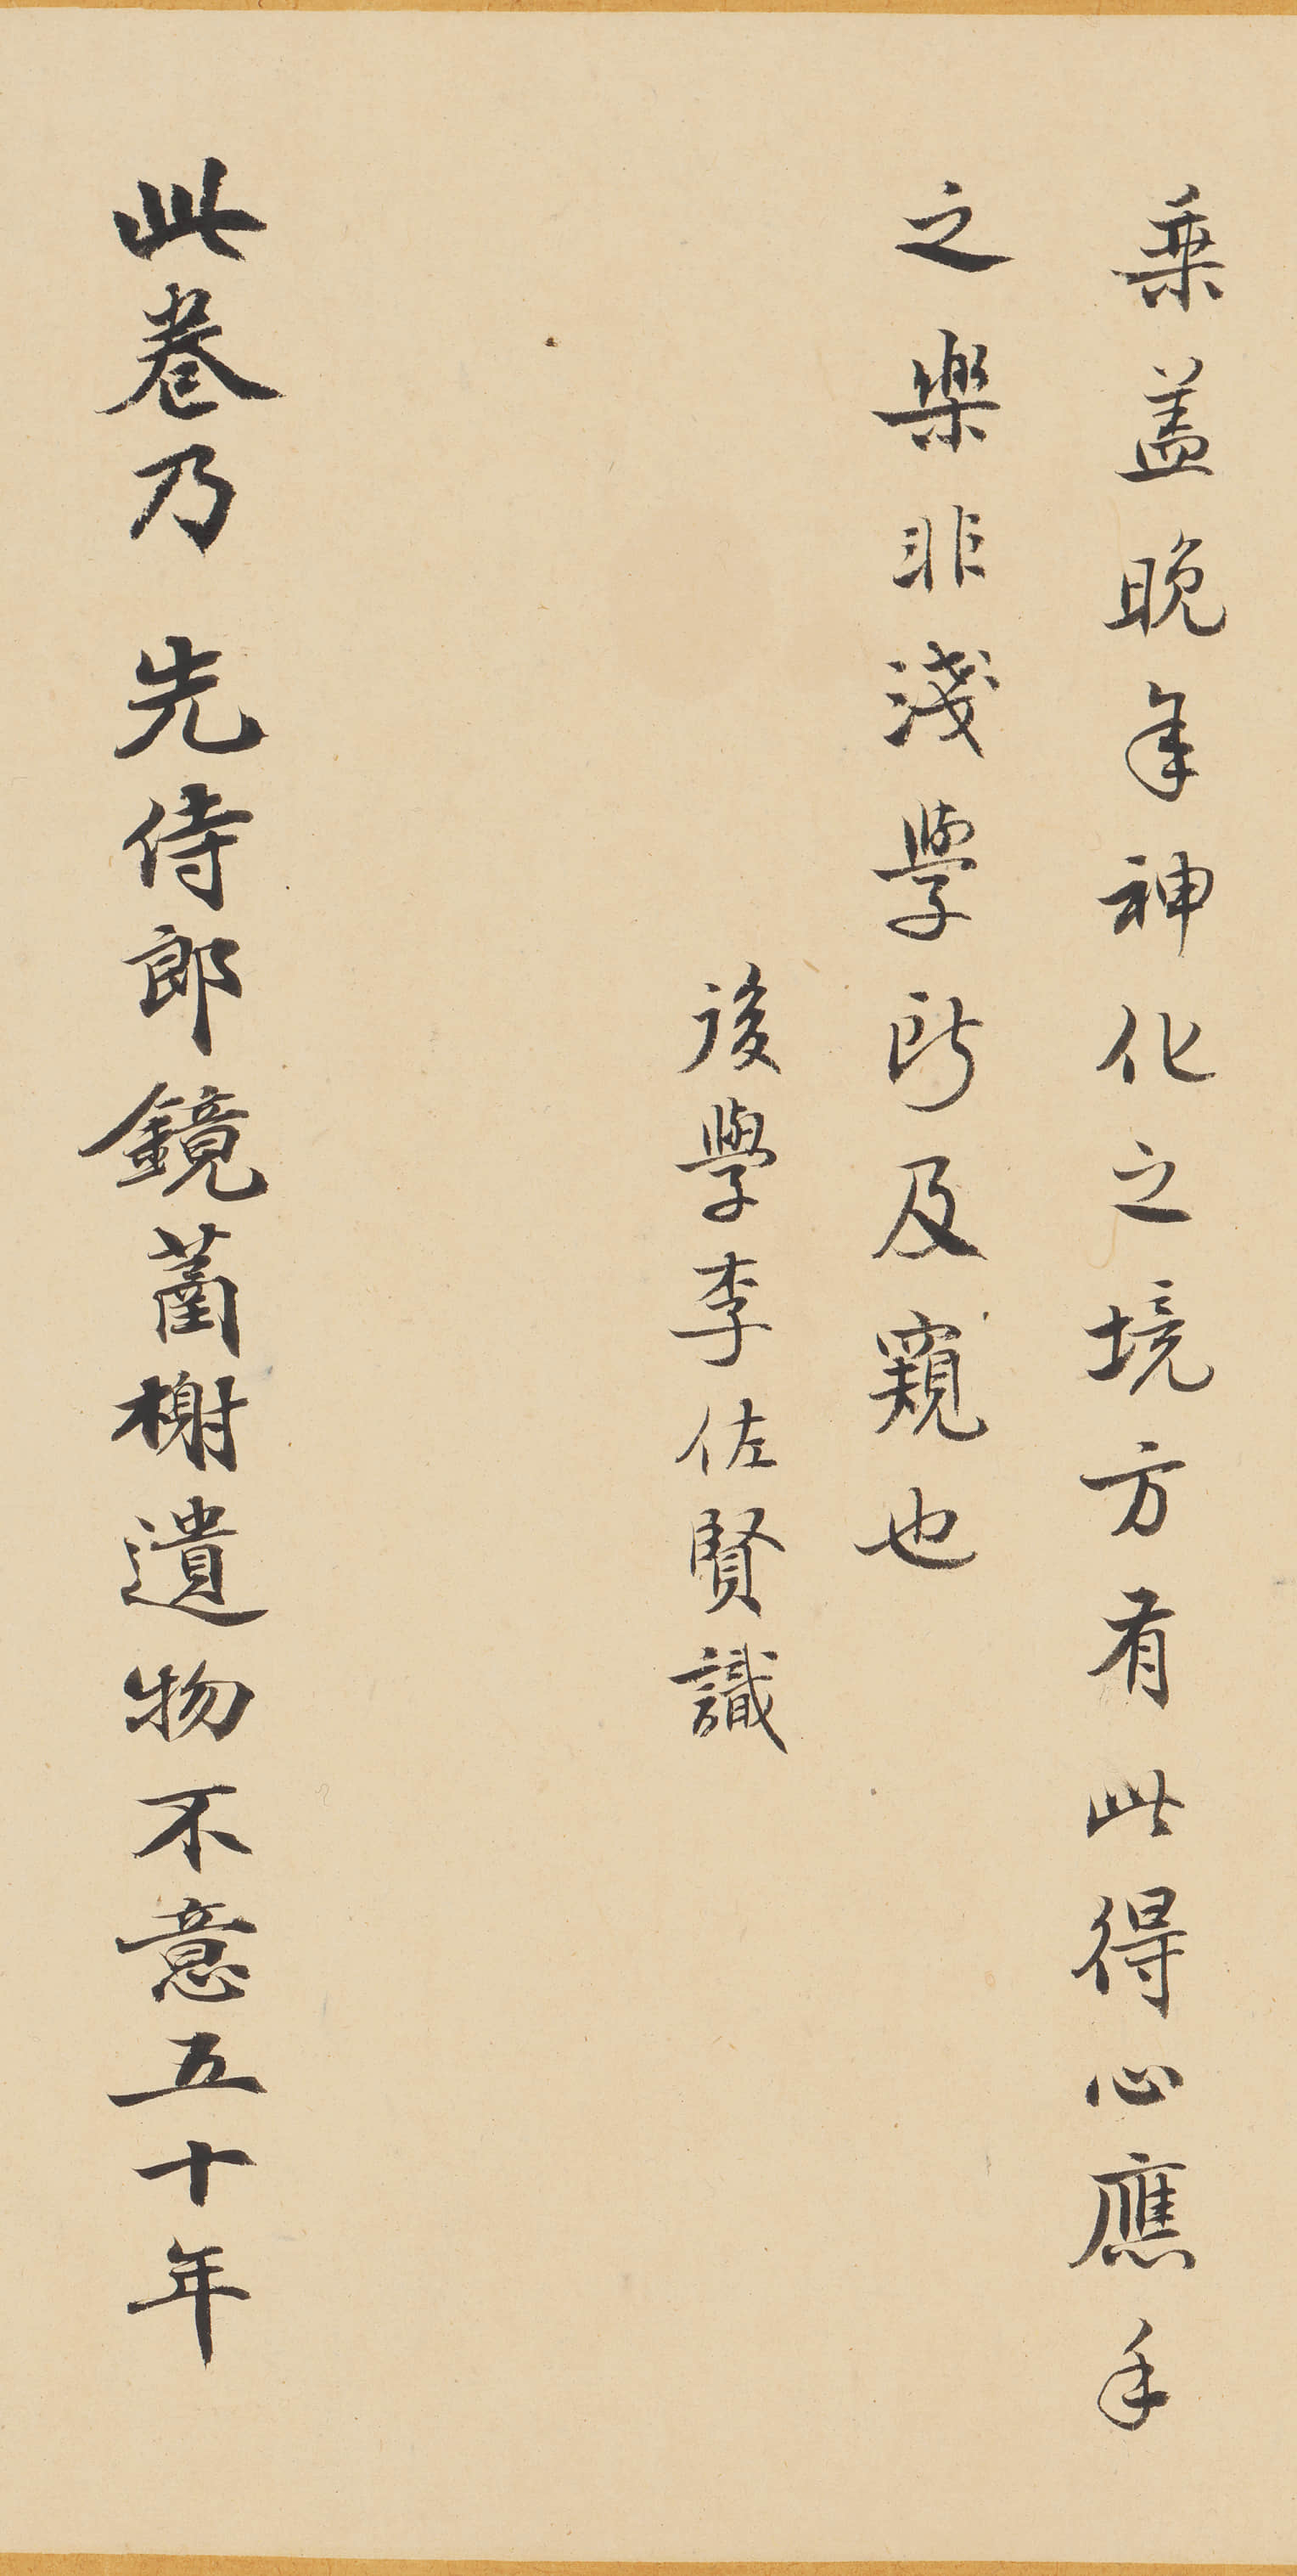 乗盖晚年神化之境方有此得心應手
之樂非淺學所及窺也
後學李佐賢識
此卷乃 先侍郎鏡榭遺物不意五十年